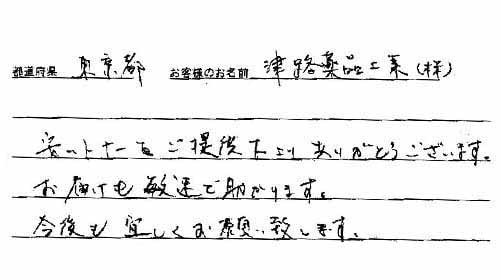 都道府県 東京都 お客様のお名前 津路薬品工業(株)
安いトナーをご提供下さりありがとうございます。
お届けも敏速で助かります。
今後も宜しくお願い致します。